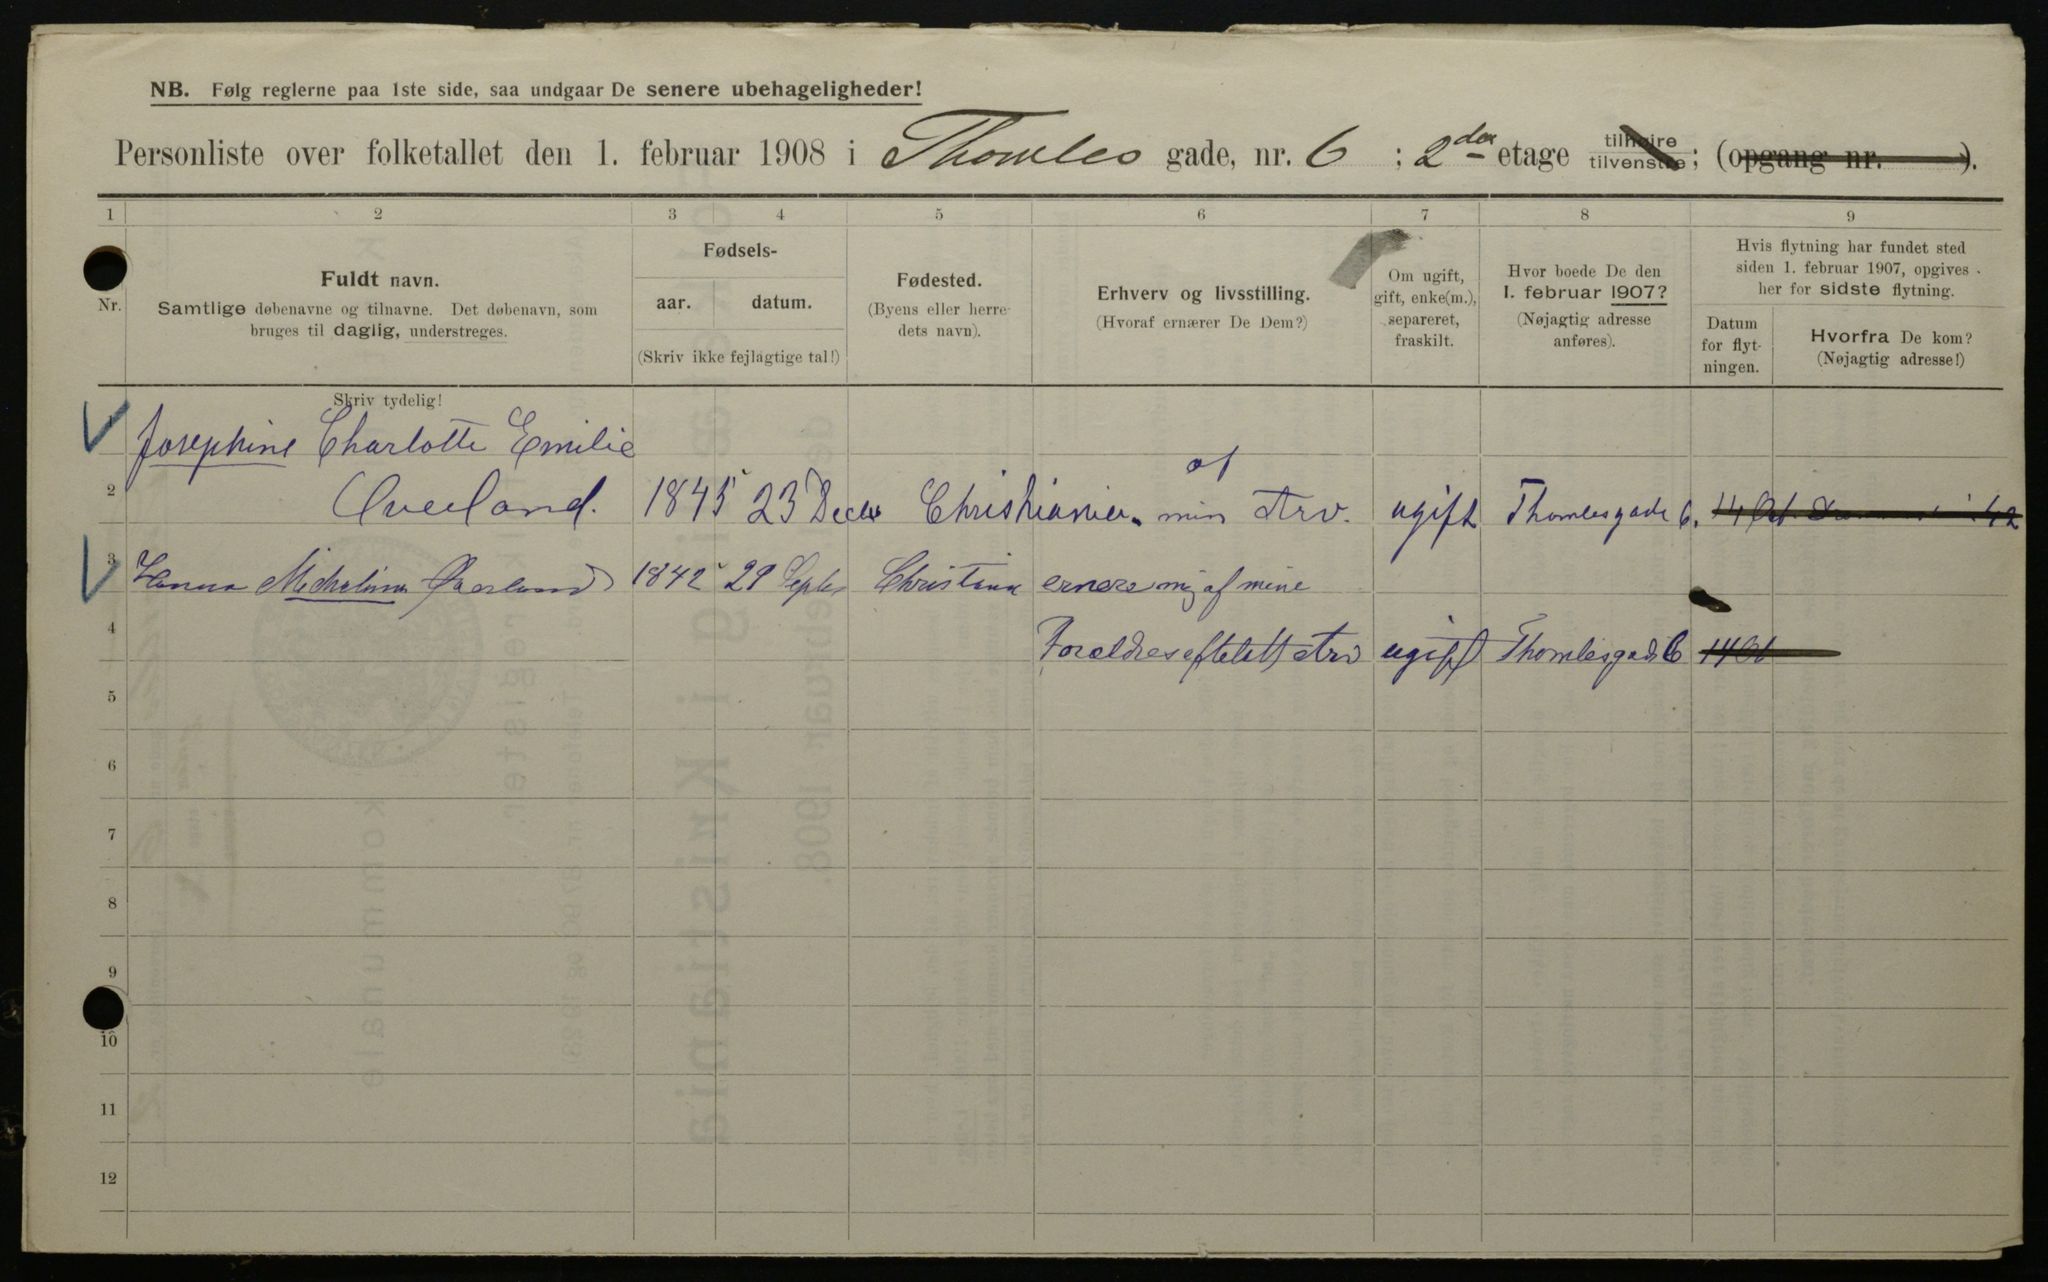 NB. Følg reglerne paa 1ste side, saa undgaar De senere ubehageligheder!
Personliste over folketallet den 1. februar 1908 i Thomles gade, nr. 6 ; 2den etage tilhøire tilvenstre ; (opgang nr. ).
1 2 3 4 5 6 7 8 9
Nr.
Fuldt navn.
Samtlige døbenavne og tilnavne. Det døbenavn, som
bruges til daglig, understreges.
Fødsels-
aar. datum.
(Skriv ikke fejlagtige tal!)
Fødested.
(Byens eller herre-
dets navn).
Erhverv og livsstilling.
(Hvoraf ernærer De Dem?)
Om ugift,
gift, enke(m.),
separeret,
fraskilt.
Hvor boede De den
1. februar 1907?
(Nøjagtig adresse
anføres).
Hvis flytning har fundet sted
siden 1. februar 1907, opgives
her for sidste flytning.
Datum
for flyt-
ningen.
Hvorfra De kom?
(Nøjagtig adresse!)
Skriv tydelig!
Josephine Charlotte Emilie
af
2 Överland. 1845 23 Decbr Christiania. min Arv. ugift Thomlesgade 6. 14 Okt 42
3 Hanna Michelina Øverland 1842 29 Septbr Christiania ernere mig af mine
4 Forældres efteladt Arv ugift Thomlesgade 6 14 Okt
5
6
7
8
9
10
11
12